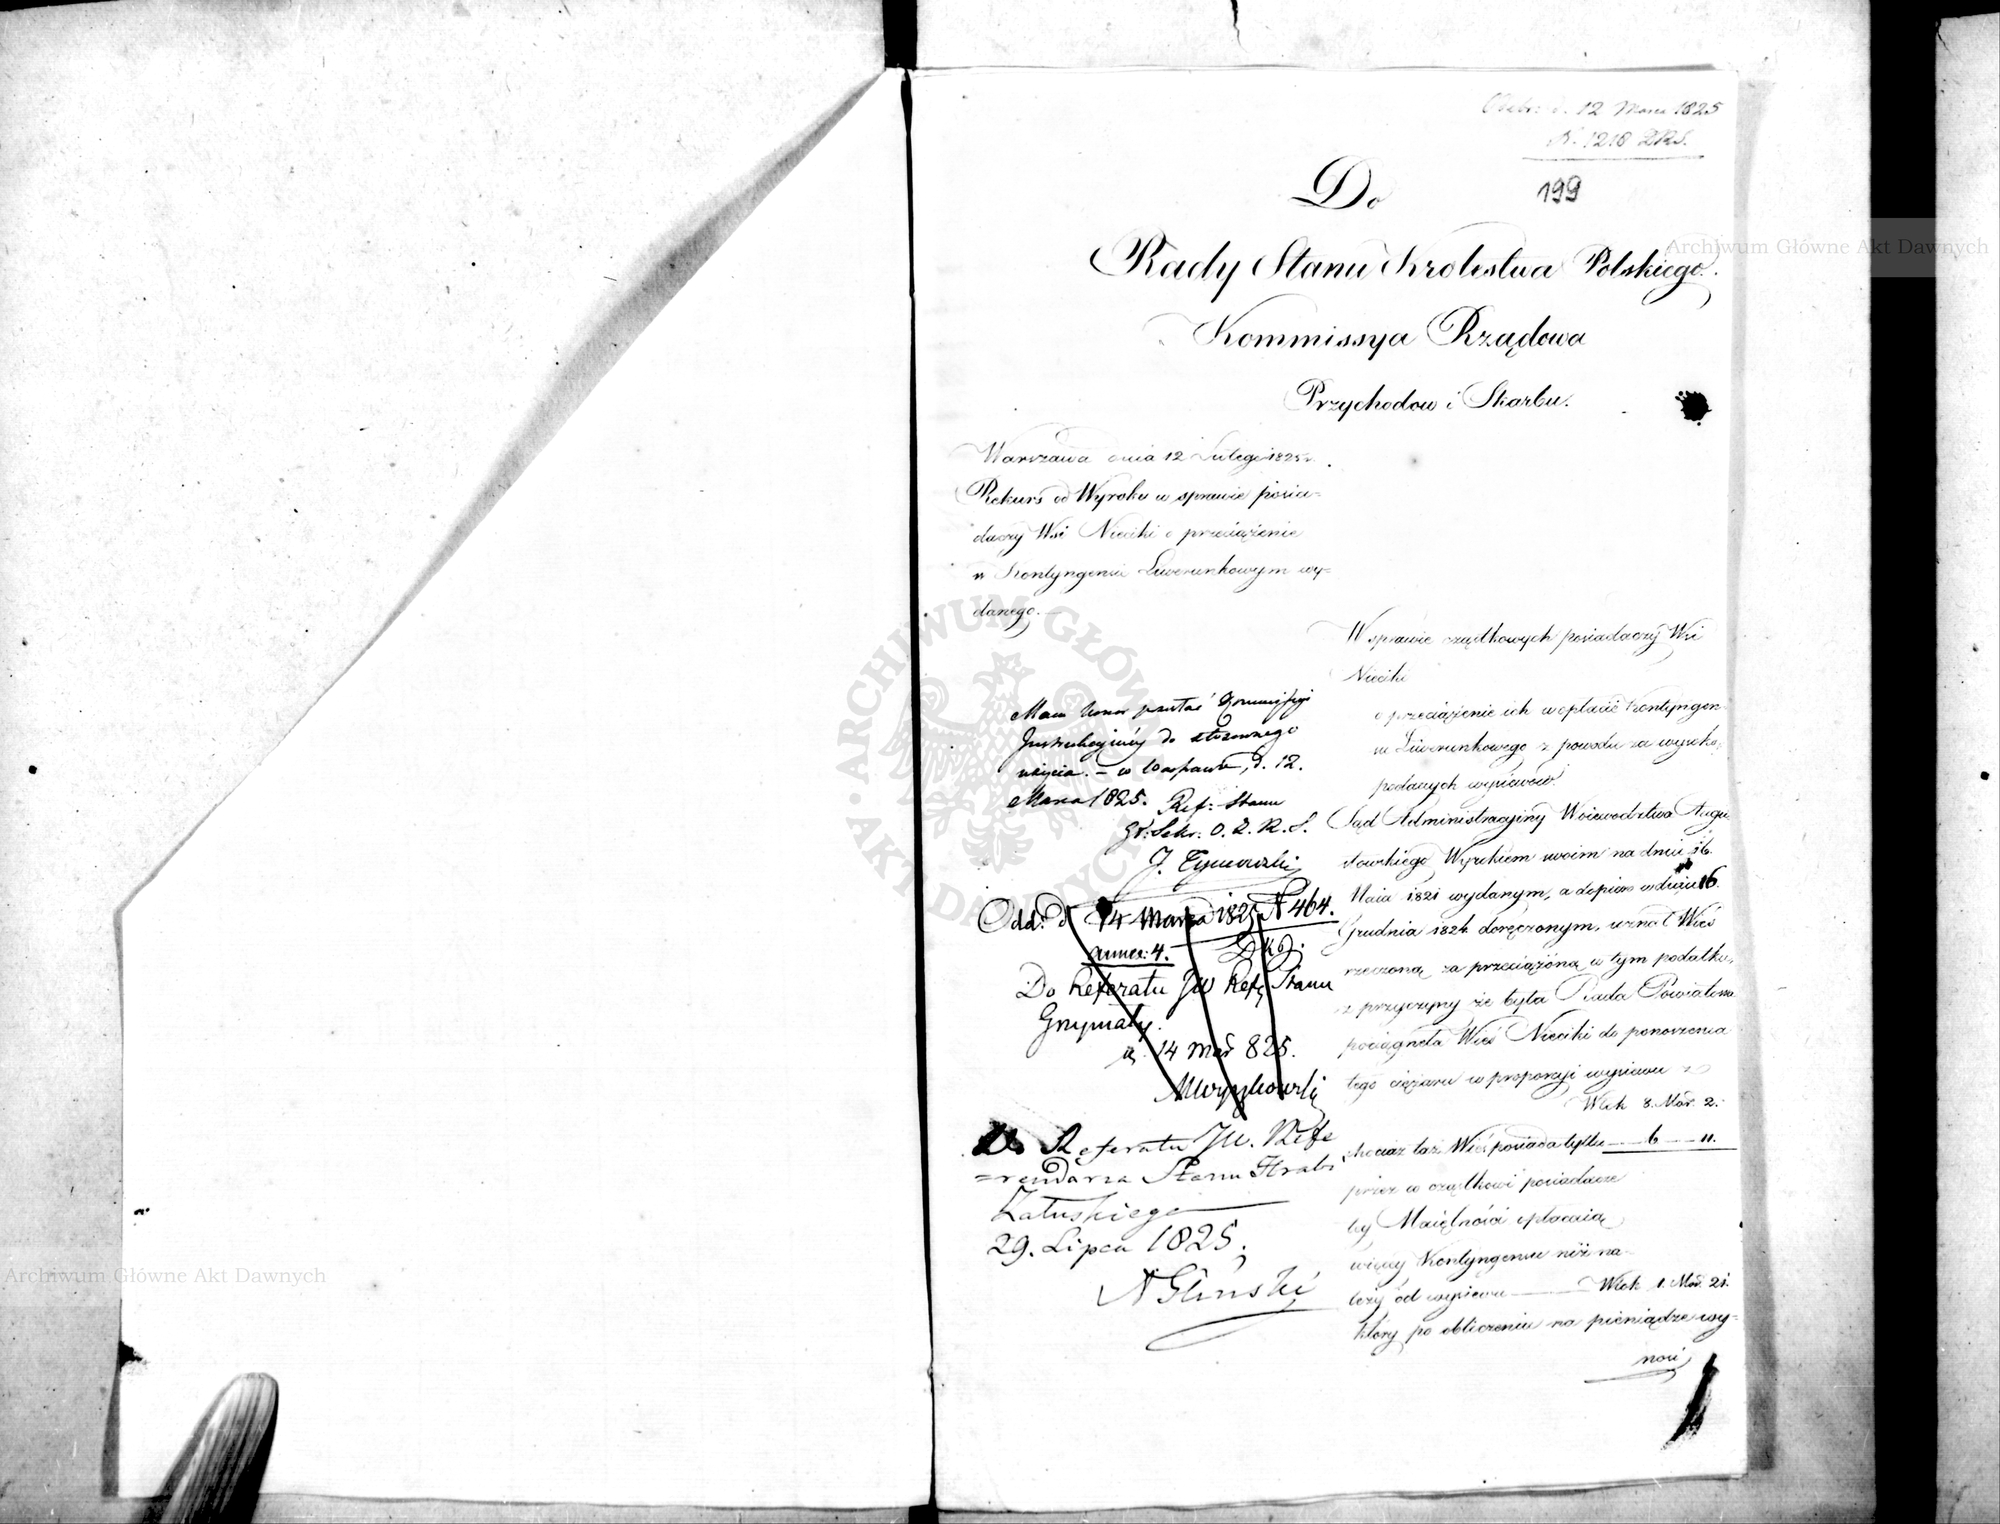 Odebr: d. 12 Marca 1825
N. 1218 ZRS.
199
Do
Rady Stanu Krolestwa Polskiego.
Kommissya Rządowa
Przychodow i Skarbu.
Warszawa dnia 12 Lutego 1825 r.
Rekurs od Wyroku w sprawie posia-
daczy Wsi Nieciki o przeciążenie
w Kontyngensie Liwerunkowym wy-
danego.
Mam honor przesłać Kommissyi
Instrukcyjnéy do stosownego
użycia. – w Warszawie, d. 12.
Marca 1825. Ref: Stanu
J. Tymowski
Odd: d. 14 Marca 1825 N 464.
annex: 4.
Do Referatu JW Ref. Stanu
Grzymały.
14 Mar 825.
Do Referatu JW. Refe
=rendarza Stanu Hrab:
Załuskiego
29. Lipca 1825.
AGliński
W sprawie cząstkowych posiadaczy Wsi
Nieciki
o przeciążenie ich w opłacie Kontyngen-
su Liwerunkowego z powodu za wysoko
podanych wysiewów.
Sąd Administracyiny Woiewodztwa Augu-
stowskiego Wyrokiem swoim na dniu 16.
Maia 1821 wydanym, a dopiero w dniu 16.
Grudnia 1824 doręczonym, uznał Wieś
rzeczoną za przeciążoną w tym podatku,
z przyczyny że była Rada Powiatowa
pociągnęła Wieś Nieciki do ponoszenia
tego ciężaru w proporcyi wysiewu z
Włok 8. Mor. 2.
chociaż taż Wieś posiada tylko — 6 — 11.
przez co cząstkowi posiadacze
téy Maiętności opłacaią
więcéy Kontyngensu niż na-
leży od wysiewu — Włok 1. Mor. 21.
który po obliczeniu na pieniądze wy-
nosi
Archiwum Główne Akt Dawnych
ARCHIWUM GŁÓWNE AKT DAWNYCH
Archiwum Główne Akt Dawnych